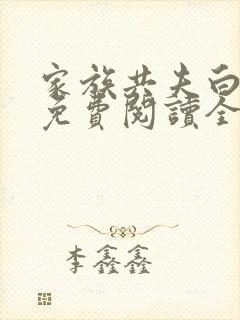 家族共夫白
免費閱讀全
李鑫鑫